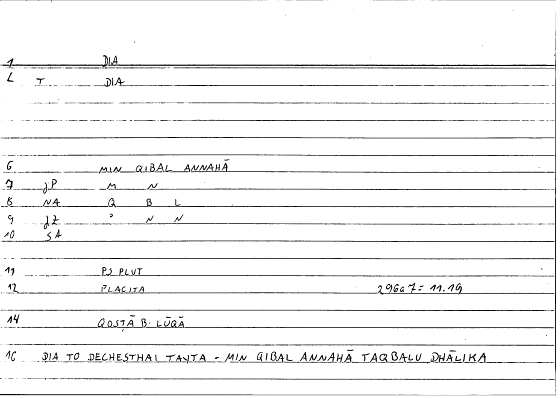 1 DIA
L T DIA
6 MIN QIBAL ANNAHĀ
7 JP M N
8 NA Q B L
9 JZ ʾ N N
10 SA
11 PS PLUT
12 PLACITA 296a7 = 11.19
14 QOSṬĀ B. LŪQĀ
16 DIA TO DECHESTHAI TAYTA - MIN QIBAL ANNAHĀ TAQBALU DHĀLIKA